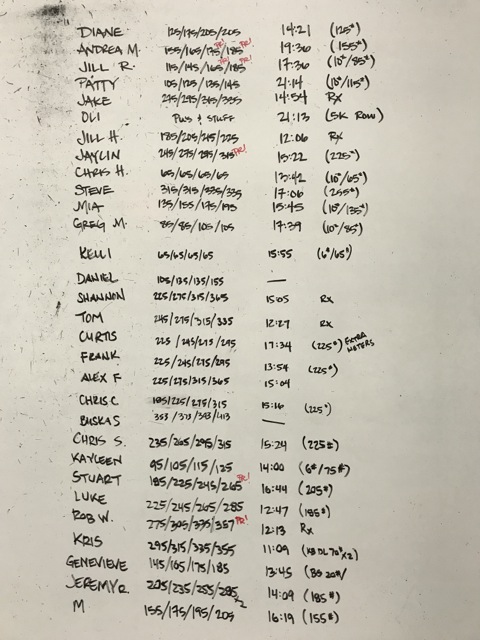 DIANE 125/175/205/205 14:21 (125#)
ANDREA M. 155/165/175/185 PR! PR! 19:36 (155#)
JILL R. 115/145/165/185 PR! PR! 17:36 (10"/85#)
PATTY 105/125/135/145 21:14 (10"/115#)
JAKE 275/295/315/335 14:54 RX
OLI PWS & STUFF 21:13 (5K ROW)
JILL H. 185/205/215/225 12:06 RX
JAYLIN 245/275/295/315 PR! 15:22 (225#)
CHRIS H. 65/65/65/65 13:42 (10"/65#)
STEVE 315/315/335/335 17:06 (255#)
MIA 135/155/175/195 15:45 (10"/135#)
GREG M. 85/85/105/105 17:39 (10"/85#)
KELLI 65/65/65/65 15:55 (6"/65#)
DANIEL 105/135/135/155 —
SHANNON 225/275/315/365 15:05 RX
TOM 245/275/315/335 12:27 RX
CURTIS 225/245/275/295 17:34 (225#) EXTRA METERS
FRANK 225/245/275/295 13:54 (225#)
ALEX F 225/275/315/365 15:04
CHRIS C. 185/225/275/315 15:16 (225#)
353/373/393/413 —
CHRIS S. 235/265/295/315 15:24 (225#)
KAYLEEN 95/105/115/125 14:00 (6"/75#)
STUART 185/225/245/265 PR! 16:44 (205#)
LUKE 225/245/265/285 12:47 (185#)
ROB W. 275/305/335/357 PR! 12:13 RX
KRIS 295/315/335/355 11:09 (KB DL 70#x2)
GENEVIEVE 145/165/175/185 13:45 (BS 20#/
JEREMY R. 205/235/255/285 x2 14:09 (185#)
M 155/175/195/205 16:19 (155#)